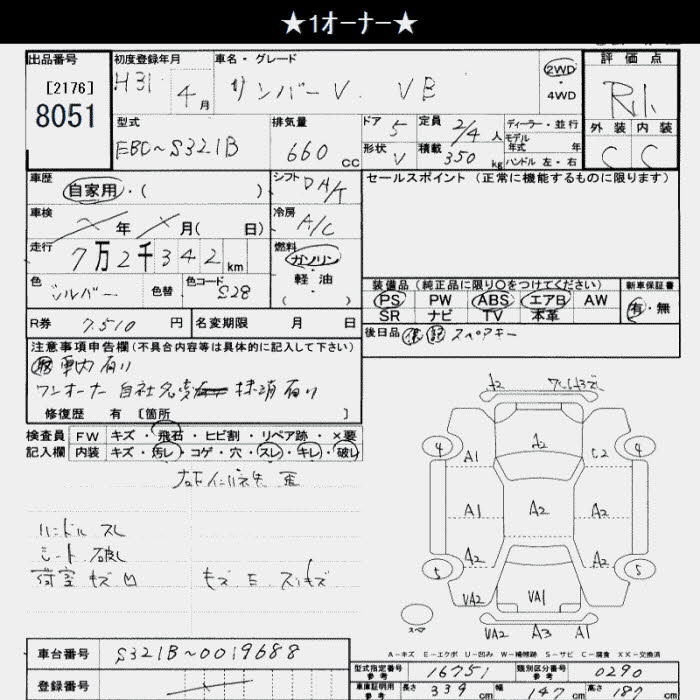 ★1オーナー★
出品番号 初度登録年月 車名・グレード 2WD 評価点
[2176] H31 4月 サンバーV VB ・4WD R1
8051
型式 排気量 ドア 5 定員 2/4人 ディーラー・並行 外装 内装
EBD~S321B 660cc 形状 V 積載 350kg モデル年式 年 C C
ハンドル 左・右
車歴 自家用・( ) シフト DA/T セールスポイント(正常に機能するものに限ります)
車検 年 月( 日) 冷房 A/C
走行 7万2千342km 燃料 ガソリン
色 シルバー 色替 色コード S28 軽油 ( )
装備品(純正品に限り○をつけてください) 新車保証書
PS PW ABS エアB AW 有・無
SR ナビ TV 本革
R券 7,510円 名変期限 月 日 後日品 スペアキー
注意事項申告欄(不具合内容等は具体的に記入して下さい)
ワンオーナー 自社名 抹消有り
修復歴 有 [箇所 ]
検査員 FW キズ・飛石・ヒビ割・リペア跡・×要
記入欄 内装 キズ・汚レ・コゲ・穴・スレ・キレ・破レ
ハンドル スレ
シート 破レ
荷室 キズ 凹
A2
4 A1 A2 C2 4
A1 A2 A2
5 A2 A2 5
VA2 VA1
スペア VA2 A3 A1
A-キズ E-エクボ U-凹み W-補修跡 S-サビ C-腐食 XX-交換済
車台番号 S321B~0019688 型式指定番号 参考 16751 類別区分番号 参考 0290
登録番号 車庫証明用 参考 長さ 339cm 幅 147cm 高さ 187cm